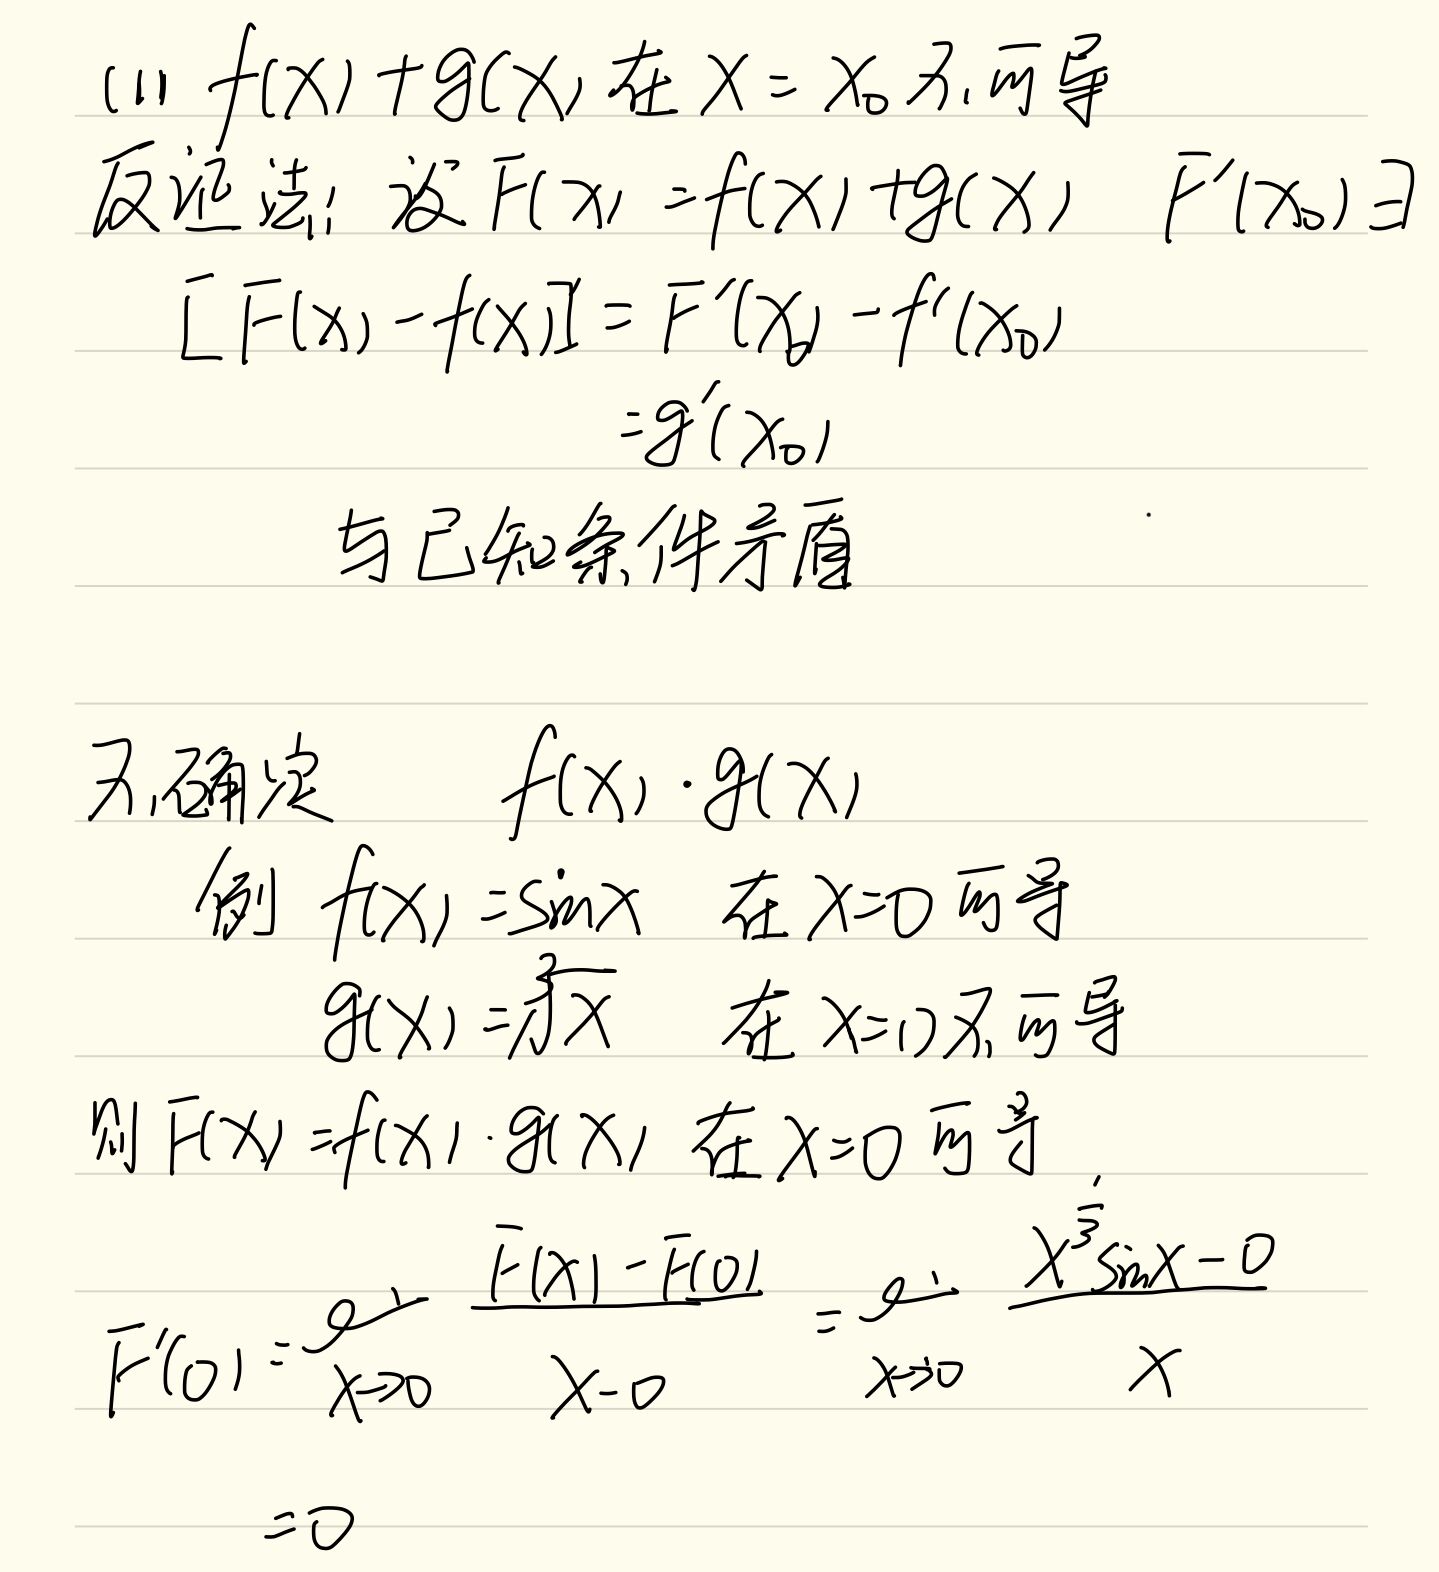 (1) f(x)+g(x)在x=x₀不可导
反证法: 设F(x)=f(x)+g(x) F'(x₀)∃
[F(x)-f(x)]'=F'(x₀)-f'(x₀)
=g'(x₀)
与已知条件矛盾
不确定 f(x)·g(x)
例 f(x)=sinx 在x=0可导
g(x)=∛x 在x=0不可导
则F(x)=f(x)·g(x)在x=0可导
F'(0)=lim_{x→0} (F(x)-F(0))/(x-0) = lim_{x→0} (x^{1/3}sinx-0)/x
=0